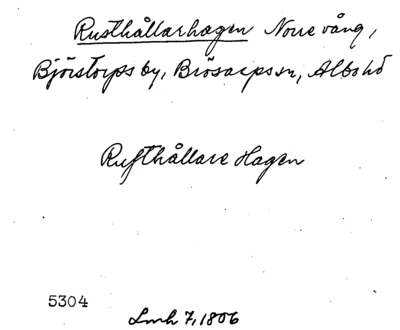 Rusthållarhagen Norre vång,
Björstorps by, Brösarps sn, Albo hd
Rusthållare Hagen
5304
Lmh 7, 1806